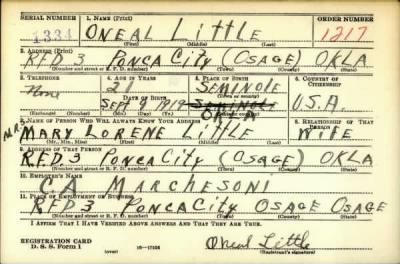 SERIAL NUMBER 1. NAME (Print) ORDER NUMBER
1334 ONEAL LITTLE 1217
(First) (Middle) (Last)
2. ADDRESS (Print)
RFD 3 PONCA CITY (OSAGE) OKLA
(Number and street or R. F. D. number) (Town) (County) (State)
3. TELEPHONE 4. AGE IN YEARS 5. PLACE OF BIRTH 6. COUNTRY OF CITIZENSHIP
None 21 SEMINOLE
DATE OF BIRTH
SEPT 9 1919 SEMINOLE U.S.A.
(Mo.) (Day) (Yr.) (State or country)
7. NAME OF PERSON WHO WILL ALWAYS KNOW YOUR ADDRESS 8. RELATIONSHIP OF THAT PERSON
MRS MARY LORENE LITTLE WIFE
(Mr., Mrs., Miss) (First) (Middle) (Last)
9. ADDRESS OF THAT PERSON
R.F.D. 3 PONCA CITY (OSAGE) OKLA
(Number and street or R. F. D. number) (Town) (County) (State)
10. EMPLOYER'S NAME
C.A. MARCHESONI
11. PLACE OF EMPLOYMENT OR BUSINESS
RFD 3 PONCA CITY OSAGE OSAGE
(Number and street or R. F. D. number) (Town) (County) (State)
I AFFIRM THAT I HAVE VERIFIED ABOVE ANSWERS AND THAT THEY ARE TRUE.
REGISTRATION CARD
D. S. S. Form 1 (over) Oneal Little
(Registrant's signature)